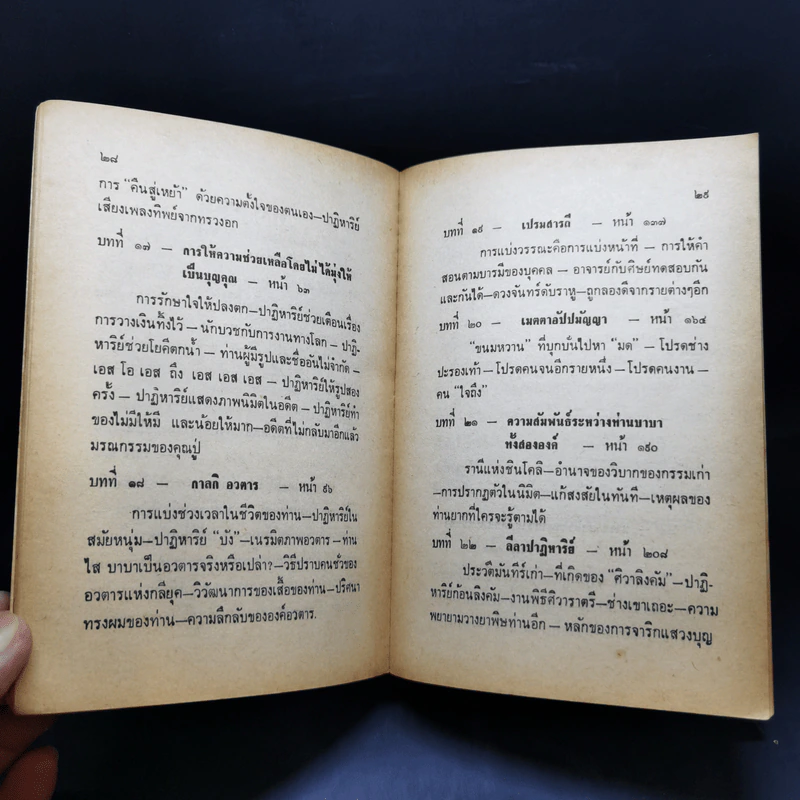 ๒๘
การ "คืนสู่เหย้า" ด้วยความตั้งใจของตนเอง—ปาฏิหาริย์
เสียงเพลงทิพย์จากทรวงอก
บทที่ ๑๗ — การให้ความช่วยเหลือโดยไม่ได้มุ่งให้
เป็นบุญคุณ — หน้า ๖๓
การรักษาใจให้ปลงตก—ปาฏิหาริย์ช่วยเตือนเรื่อง
การวางเงินทิ้งไว้ — นักบวชกับการงานทางโลก — ปาฏิ-
หาริย์ช่วยโยคีตกน้ำ — ท่านผู้มีรูปและชื่ออันไม่จำกัด —
เอส โอ เอส ถึง เอส เอส เอส — ปาฏิหาริย์ให้รูปสอง
ครั้ง — ปาฏิหาริย์แสดงภาพนิมิตในอดีต — ปาฏิหาริย์ทำ
ของไม่มีให้มี และน้อยให้มาก—อดีตที่ไม่กลับมาอีกแล้ว
มรณกรรมของคุณปู่
บทที่ ๑๘ — กาลกิ อวตาร — หน้า ๙๖
การแบ่งช่วงเวลาในชีวิตของท่าน—ปาฏิหาริย์ใน
สมัยหนุ่ม—ปาฏิหาริย์ "บัง"—เนรมิตภาพอวตาร —ท่าน
ไส บาบาเป็นอวตารจริงหรือเปล่า?—วิธีปราบคนชั่วของ
อวตารแห่งกลียุค—วิวัฒนาการของเสื้อของท่าน—ปริศนา
ทรงผมของท่าน—ความลึกลับขององค์อวตาร.
๒๙
บทที่ ๑๙ — เปรมสารถี — หน้า ๑๓๗
การแบ่งวรรณะคือการแบ่งหน้าที่ — การให้คำ
สอนตามบารมีของบุคคล — อาจารย์กับศิษย์ทดสอบกัน
และกันได้—ดวงจันทร์ดับราหู—ถูกลองดีจากรายต่างๆอีก
บทที่ ๒๐ — เมตตาอัปปมัญญา — หน้า ๑๖๔
"ขนมหวาน" ที่บุกบั่นไปหา "มด" — โปรดช่าง
ปะรองเท้า—โปรดคนจนอีกรายหนึ่ง—โปรดคนงาน —
คน "ใจถึง"
บทที่ ๒๑ — ความสัมพันธ์ระหว่างท่านบาบา
ทั้งสององค์ — หน้า ๑๙๐
รานีแห่งชินโคลิ—อำนาจของวิบากของกรรมเก่า
—การปรากฏตัวในนิมิต—แก้สงสัยในทันที—เหตุผลของ
ท่านยากที่ใครจะรู้ตามได้
บทที่ ๒๒ — ลีลาปาฏิหาริย์ — หน้า ๒๐๘
ประวัติมันทีร์เก่า—ที่เกิดของ "ศิวาลิงคัม"—ปาฏิ-
หาริย์ก้อนลิงคัม—งานพิธีศิวาราตรี—ช่างเขาเถอะ—ความ
พยายามวางยาพิษท่านอีก — หลักของการจาริกแสวงบุญ